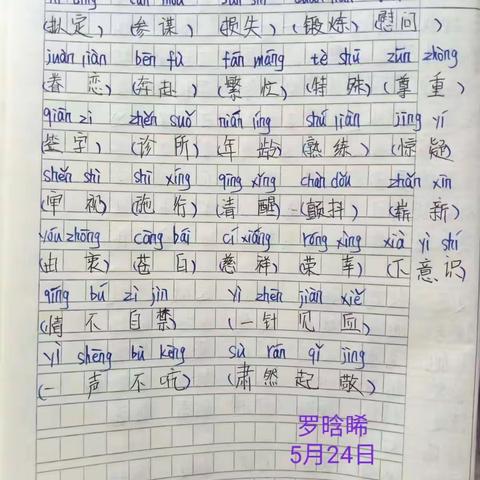 (拟定) (参谋) (损失) (锻炼) (慰问)
juàn jiàn bēn fù fán máng tè shū zūn zhòng
(眷恋) (奔赴) (繁忙) (特殊) (尊重)
qiān zì zhěn suǒ nián líng shú liàn jīng yí
(签字) (诊所) (年龄) (熟练) (惊疑)
shěn shì shī xíng qīng xǐng chàn dǒu zhǎn xīn
(审视) (施行) (清醒) (颤抖) (崭新)
yóu zhōng cāng bái cí xiáng róng xìng xià yì shí
(由衷) (苍白) (慈祥) (荣幸) (下意识)
qíng bú zì jīn yì zhēn jiàn xiě
(情不自禁) (一针见血)
yì shēng bù kēng sù rán qǐ jìng
(一声不吭) (肃然起敬)
罗晗晞
5月24日